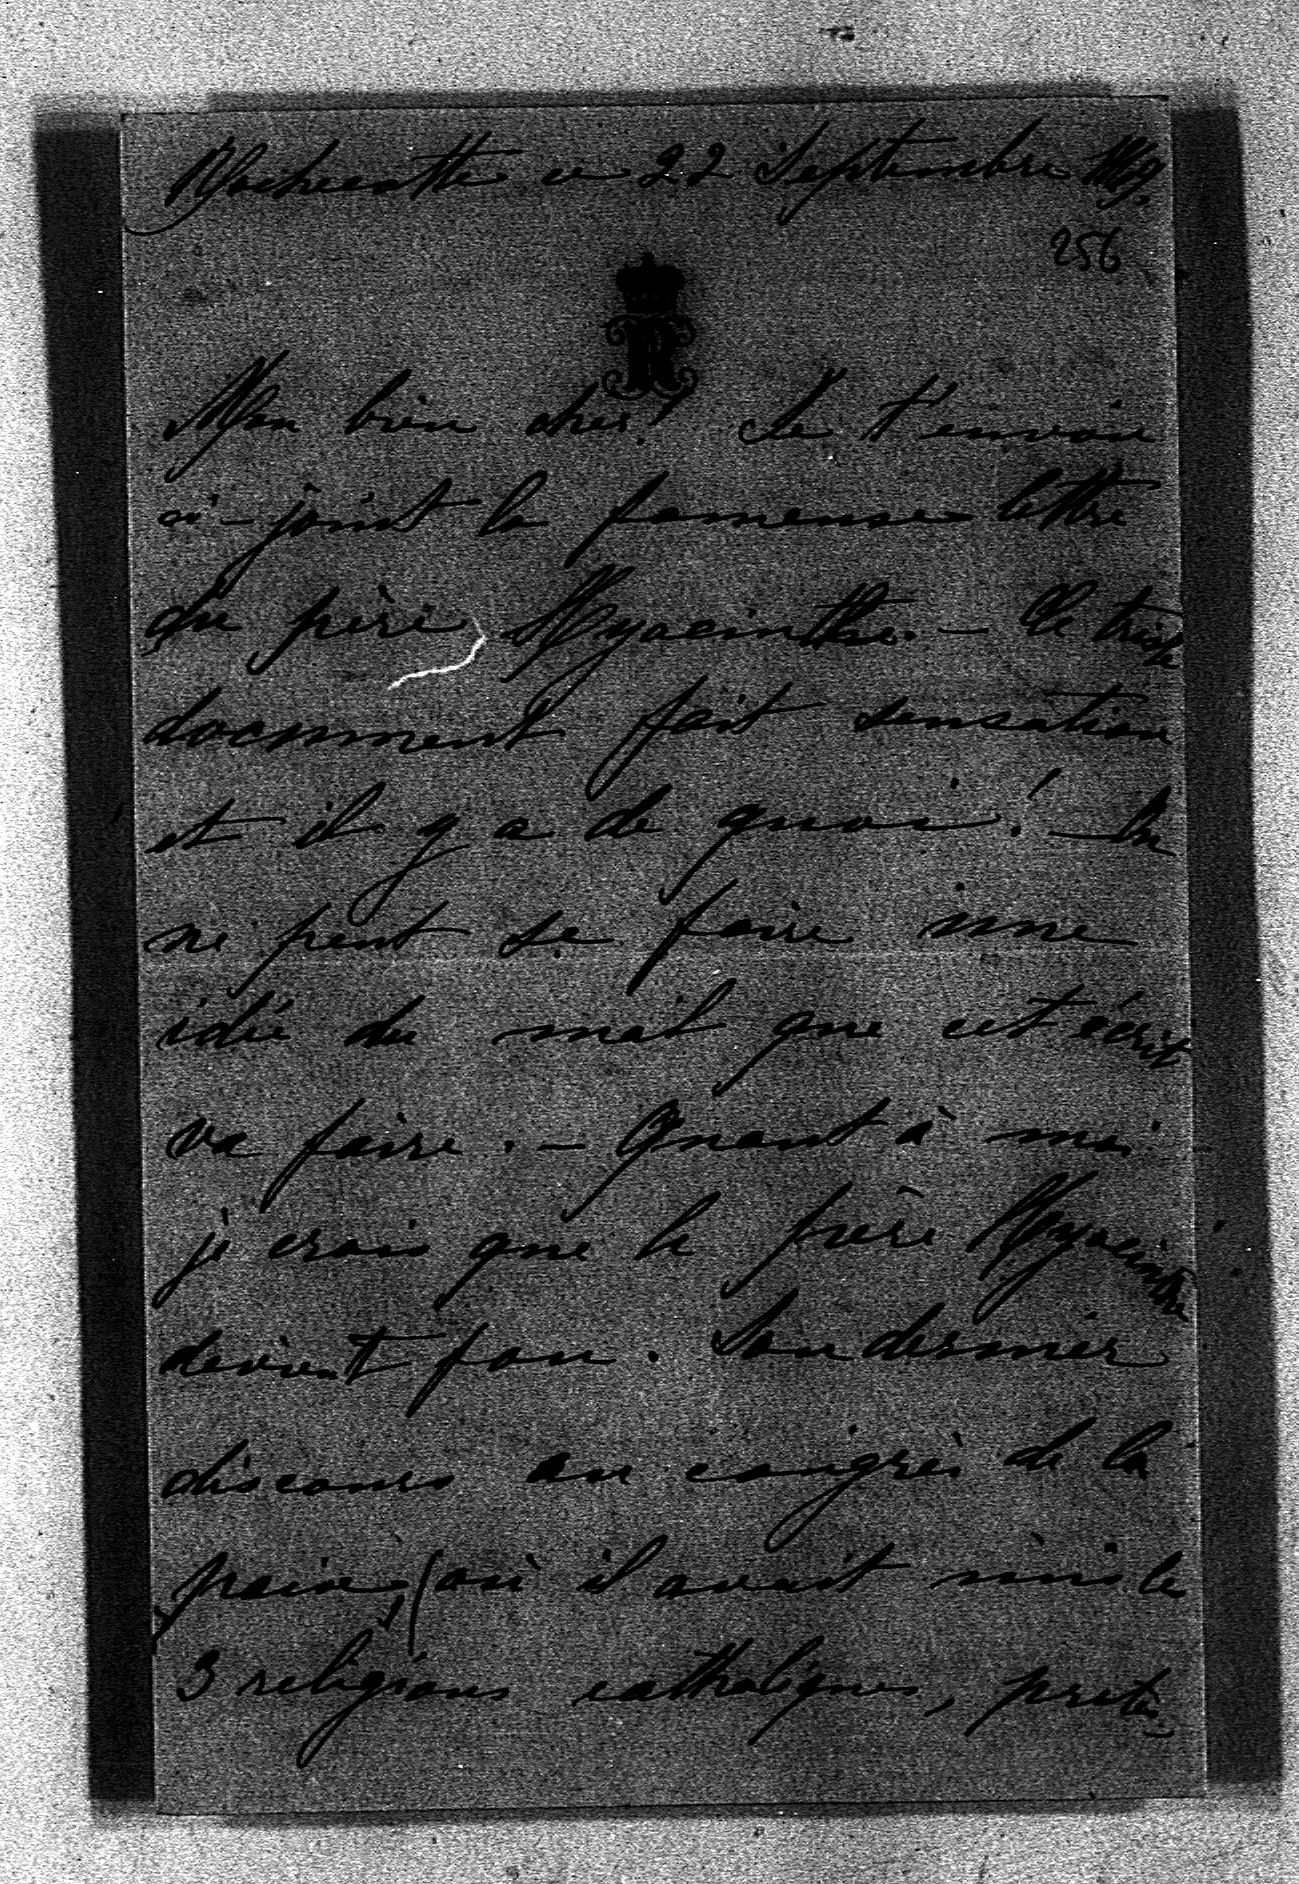 Rochecotte ce 22 Septembre 1869.
256
Mon bien cher! Je t'envoie
ci-joint la fameuse lettre
du père Hyacinthe. — Ce triste
document fait sensation
et il y a de quoi! — On
ne peut se faire une
idée du mal que cet écrit
va faire. — Quant à moi
je crois que le père Hyacinthe
devient fou. Son dernier
discours au congrès de la
paix, (où il avait mis les
3 religions catholiques, protes-